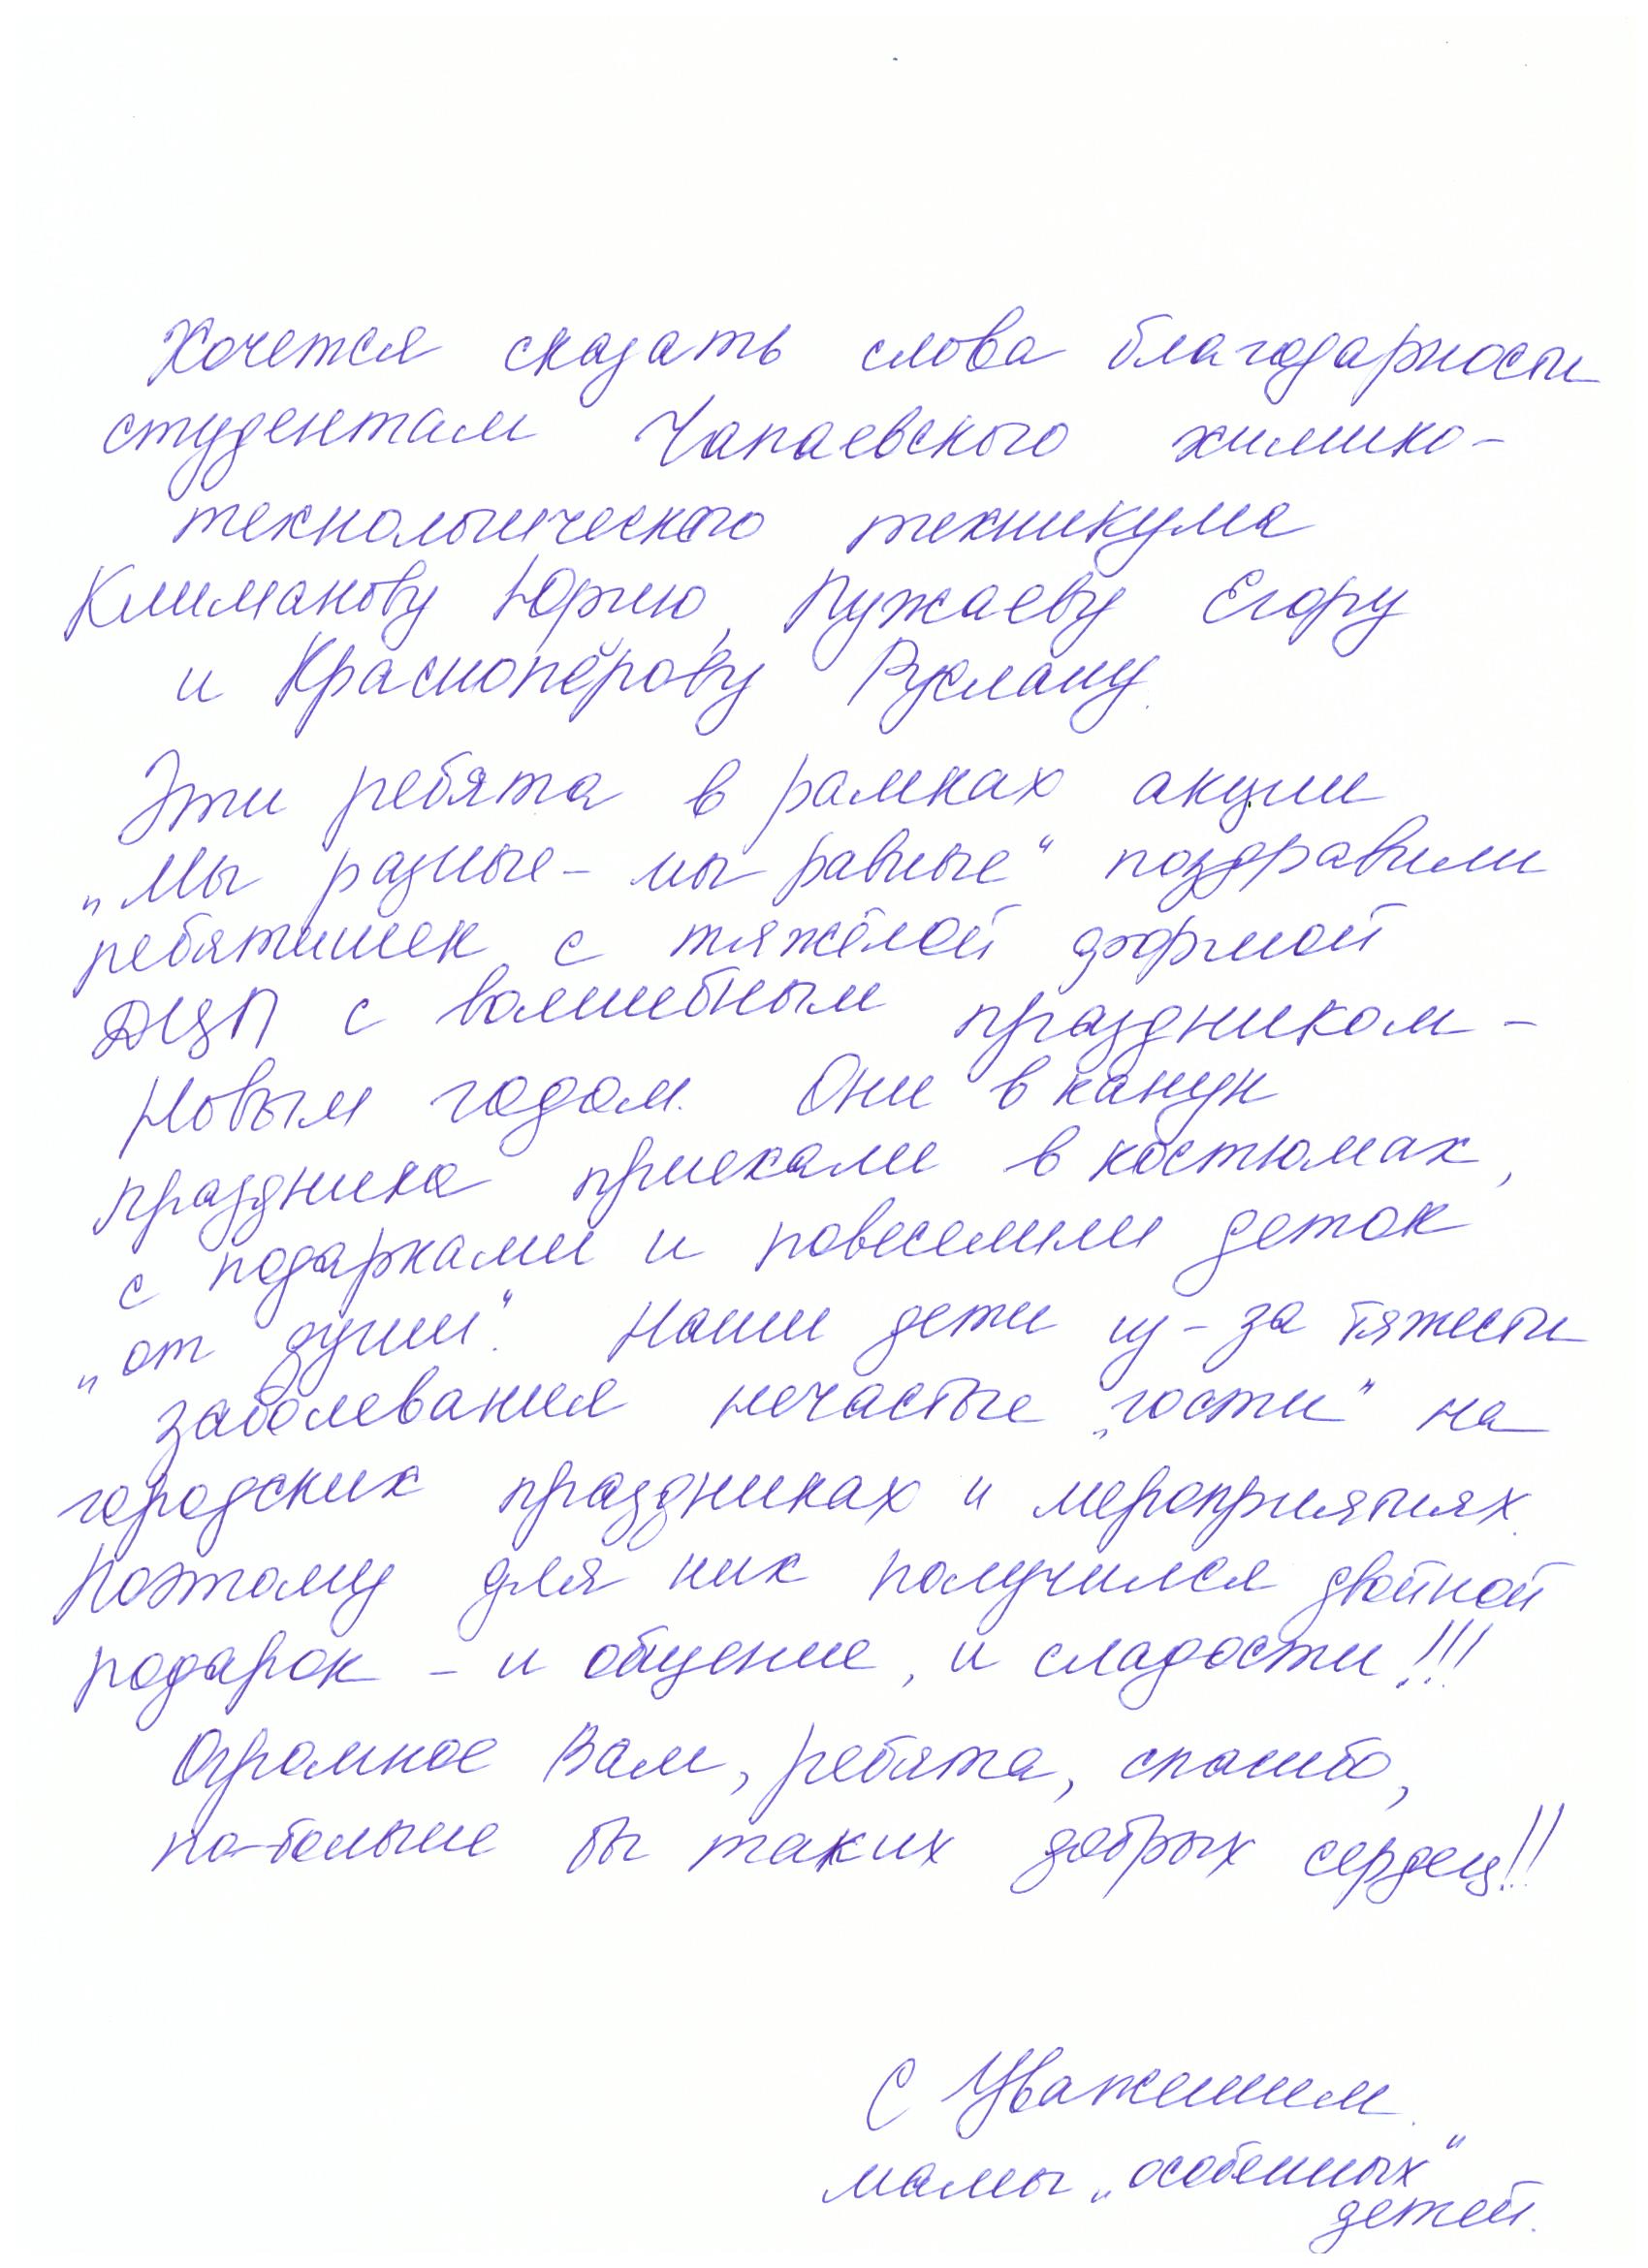 Хочется сказать слова благодарности
студентам Чапаевского химико-
технологического техникума
Климанову Юрию, Пужаеву Егору
и Краснопёрову Руслану.
Эти ребята в рамках акции
„Мы разные – мы равные“ поздравили
ребятишек с тяжёлой формой
ДЦП с волшебным праздником –
Новым годом. Они в канун
праздника приехали в костюмах,
с подарками и повеселили деток
„от души“. Наши дети из-за тяжести
заболевания нечастые „гости“ на
городских праздниках и мероприятиях.
Поэтому для них получился двойной
подарок – и общение, и сладости!!!
Огромное Вам, ребята, спасибо,
по-больше бы таких добрых сердец!!!
С Уважением.
мамы „особенных“
детей.